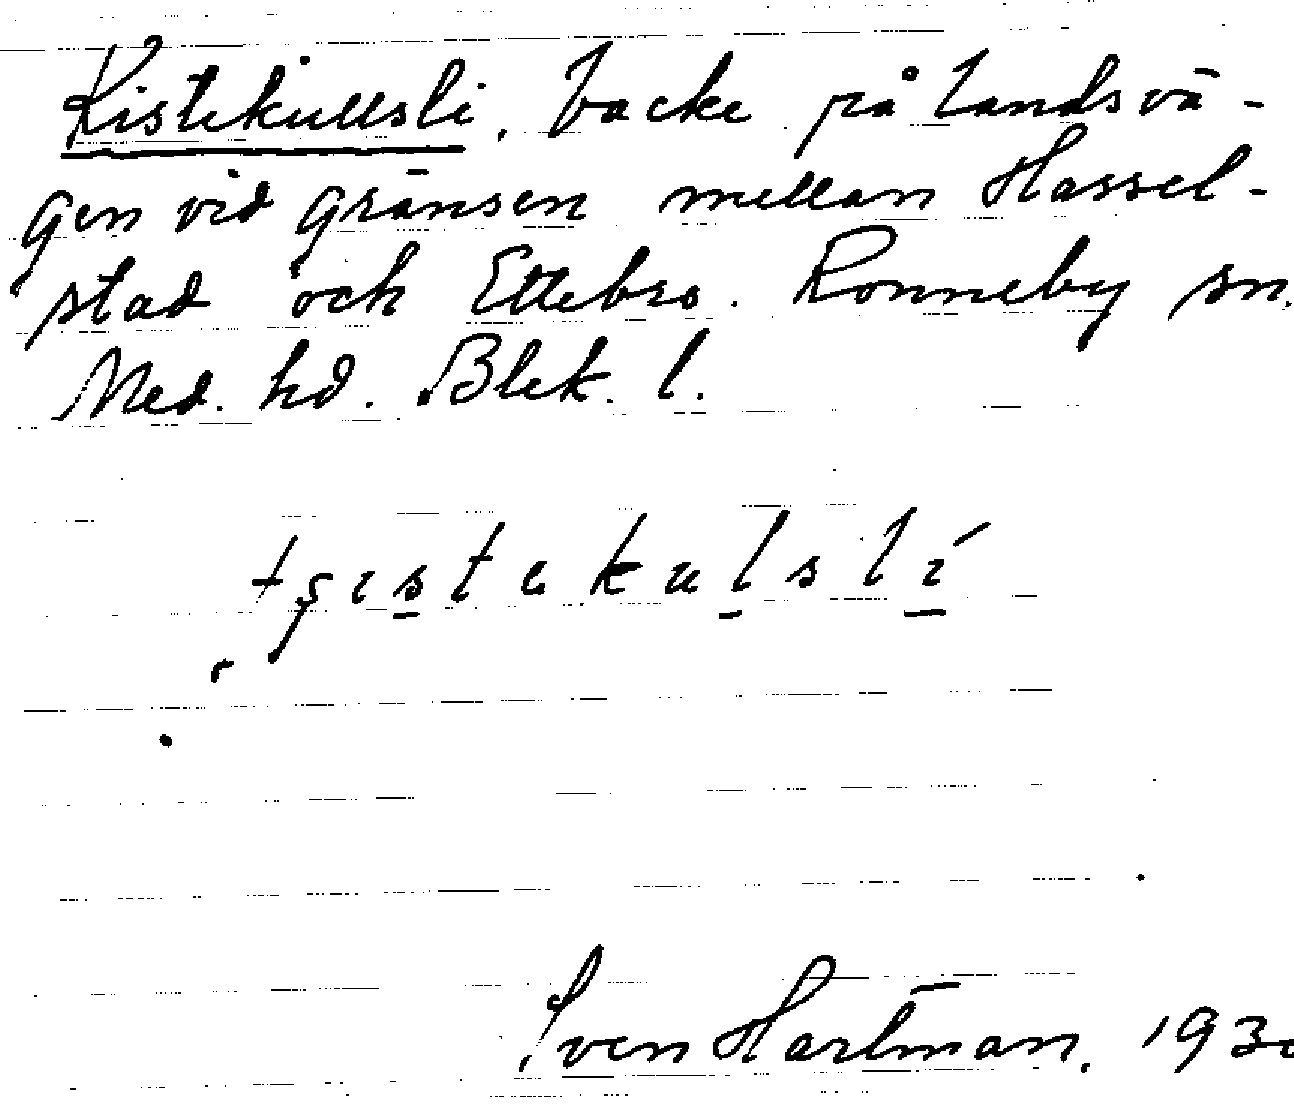 Kistekullsli, backe på landsvä-
gen vid gränsen mellan Hassel-
stad och Ettebro. Ronneby sn.
Med. hd. Blek. l.
Sven Hartman. 193